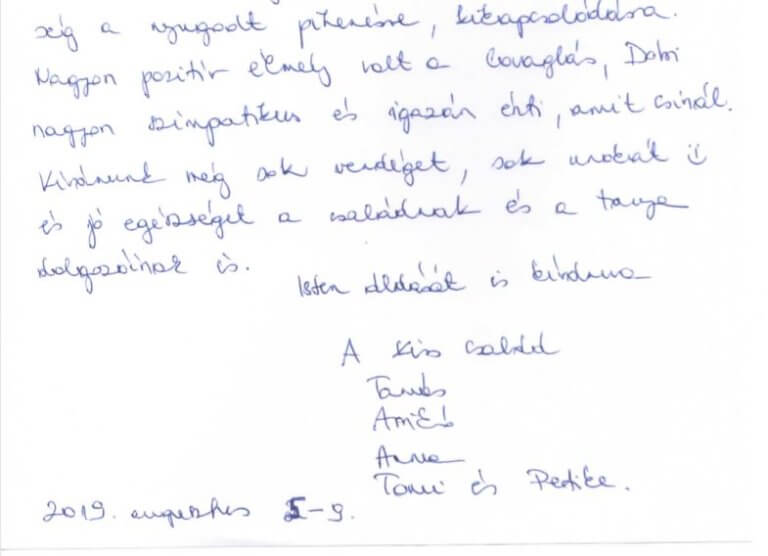 ség a nyugodt pihenésre, kikapcsolódásra.
Nagyon pozitív élmény volt a lovaglás, Dobi
nagyon szimpatikus és igazán érti, amit csinál.
Kívánunk még sok vendéget, sok unokát
és jó egészséget a családnak és a tanya
dolgozóinak is.
Isten áldását is kívánva
A Kiss család
Tamás
Anikó
Anna
Tomi és Petike.
2019. augusztus 5-9.